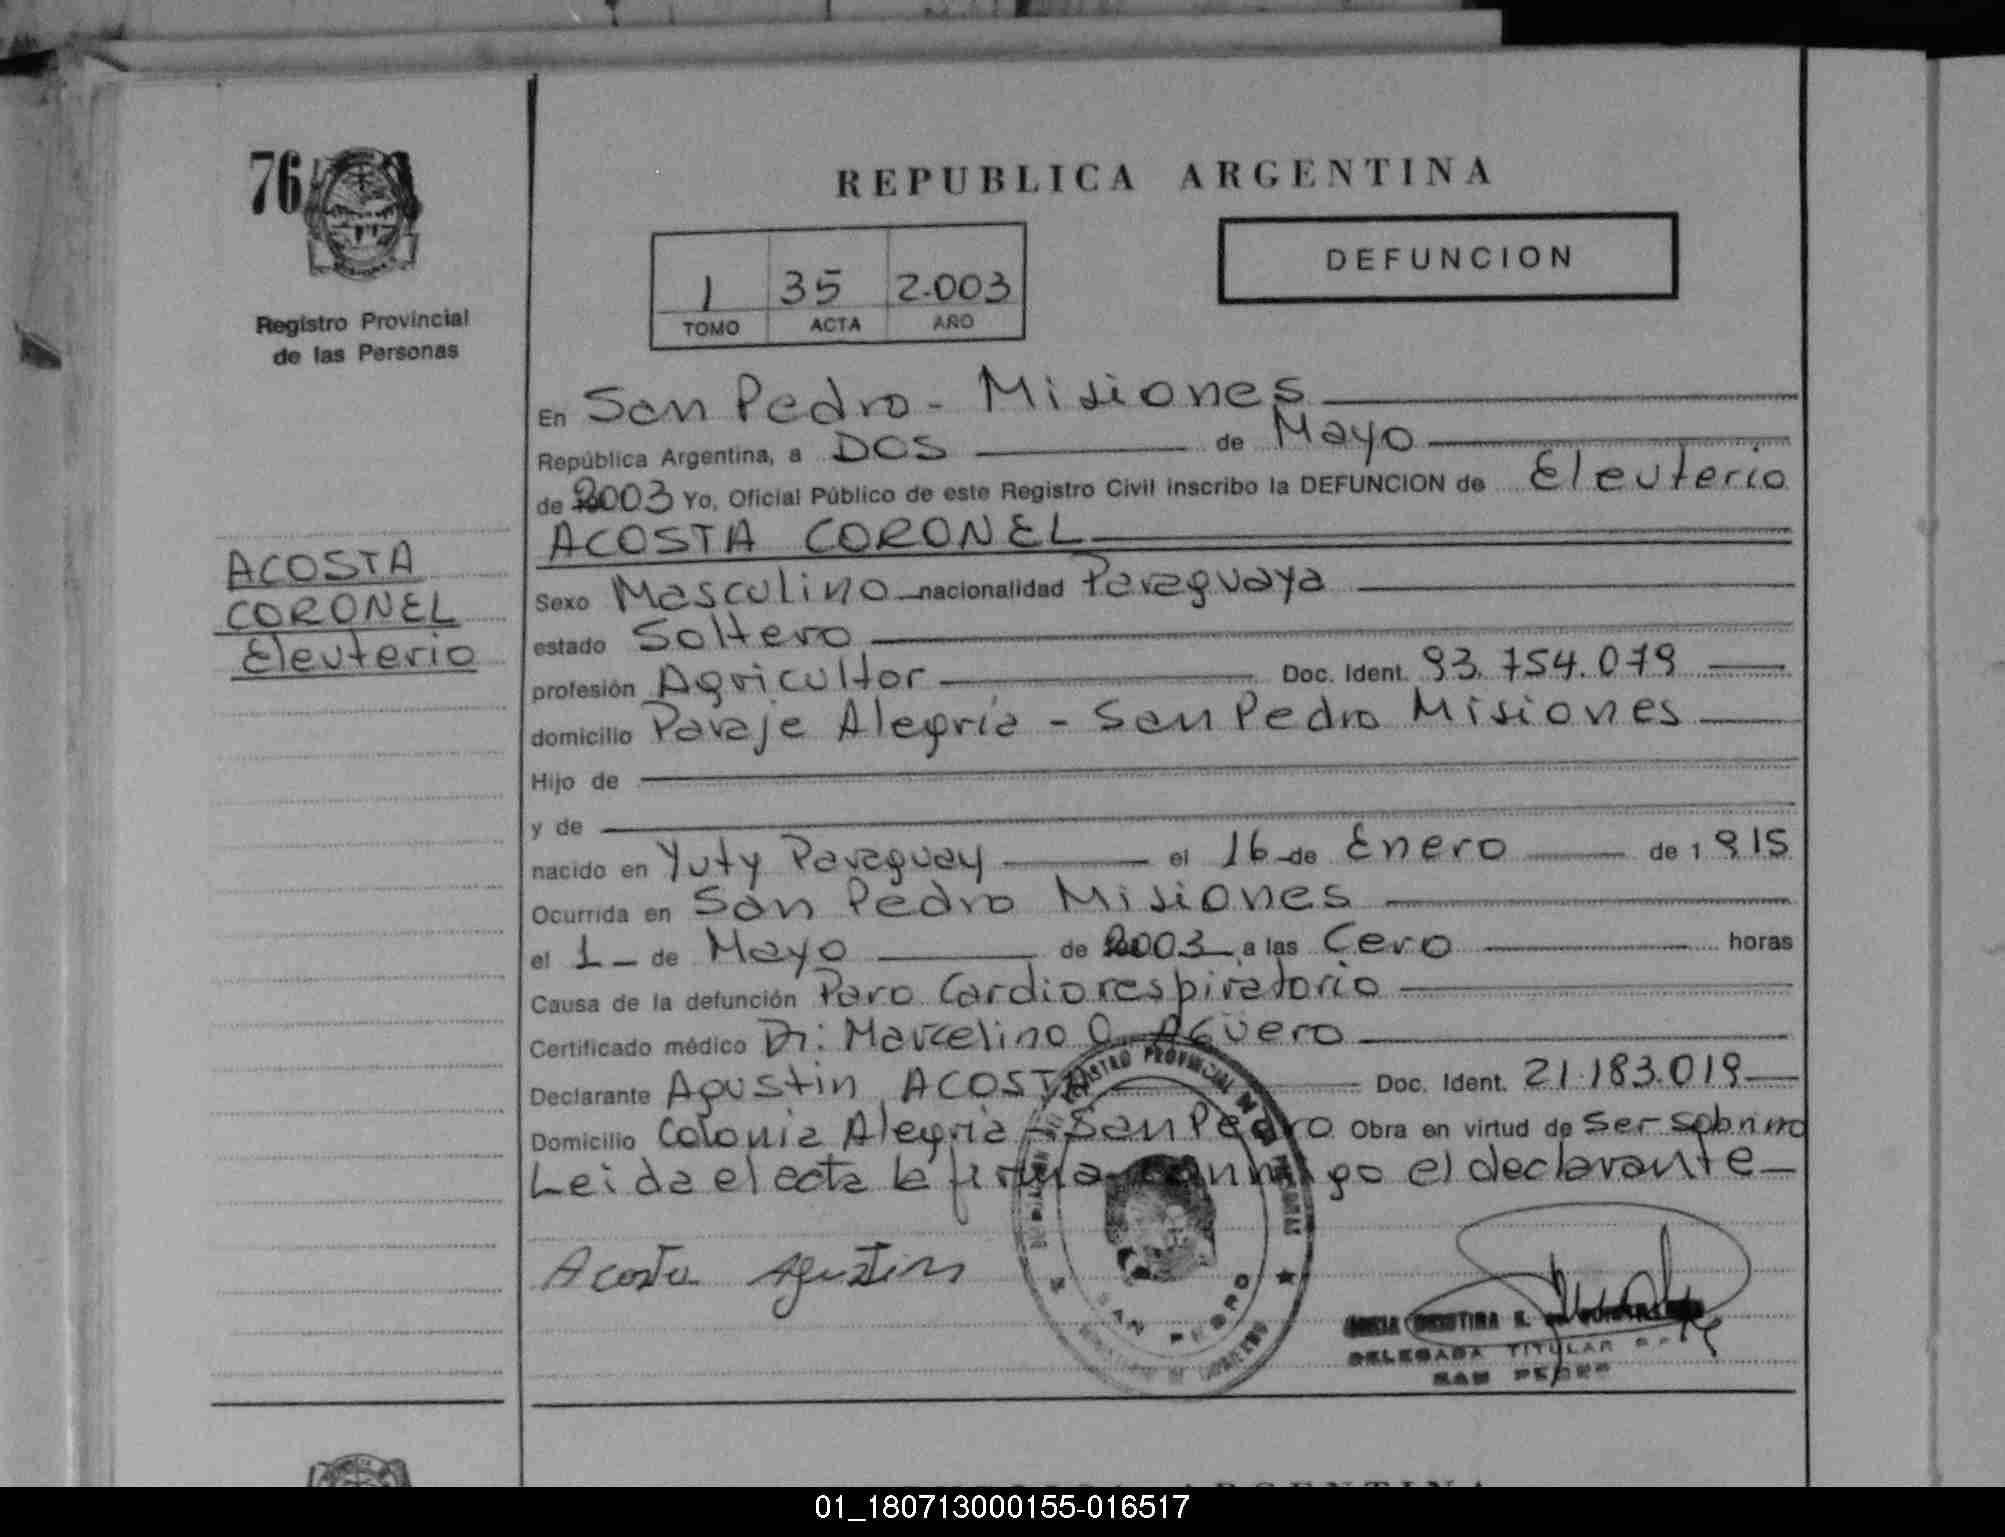 76
Registro Provincial
de las Personas
ACOSTA
CORONEL
Eleuterio
REPUBLICA ARGENTINA
1 35 2.003
TOMO ACTA AÑO
DEFUNCION
En San Pedro - Misiones
República Argentina, a DOS de Mayo
de 2003 Yo, Oficial Público de este Registro Civil inscribo la DEFUNCION de Eleuterio
ACOSTA CORONEL
Sexo Masculino nacionalidad Paraguaya
estado Soltero
profesión Agricultor Doc. Ident. 93.754.079
domicilio Paraje Alegría - San Pedro Misiones
Hijo de
y de
nacido en Yuty Paraguay el 16 de Enero de 1915
Ocurrida en San Pedro Misiones
el 1 de Mayo de 2003 a las Cero horas
Causa de la defunción Paro Cardiorespiratorio
Certificado médico Dr: Marcelino O. AGüero
Declarante Agustin ACOSTA Doc. Ident. 21.183.019
Domicilio Colonia Alegria - San Pedro Obra en virtud de ser sobrino
Leida el acta la firma conmigo el declarante
REGISTRO PROVINCIAL
SAN PEDRO
Acosta Agustin
DELEGADA TITULAR
SAN PEDRO
01_180713000155-016517